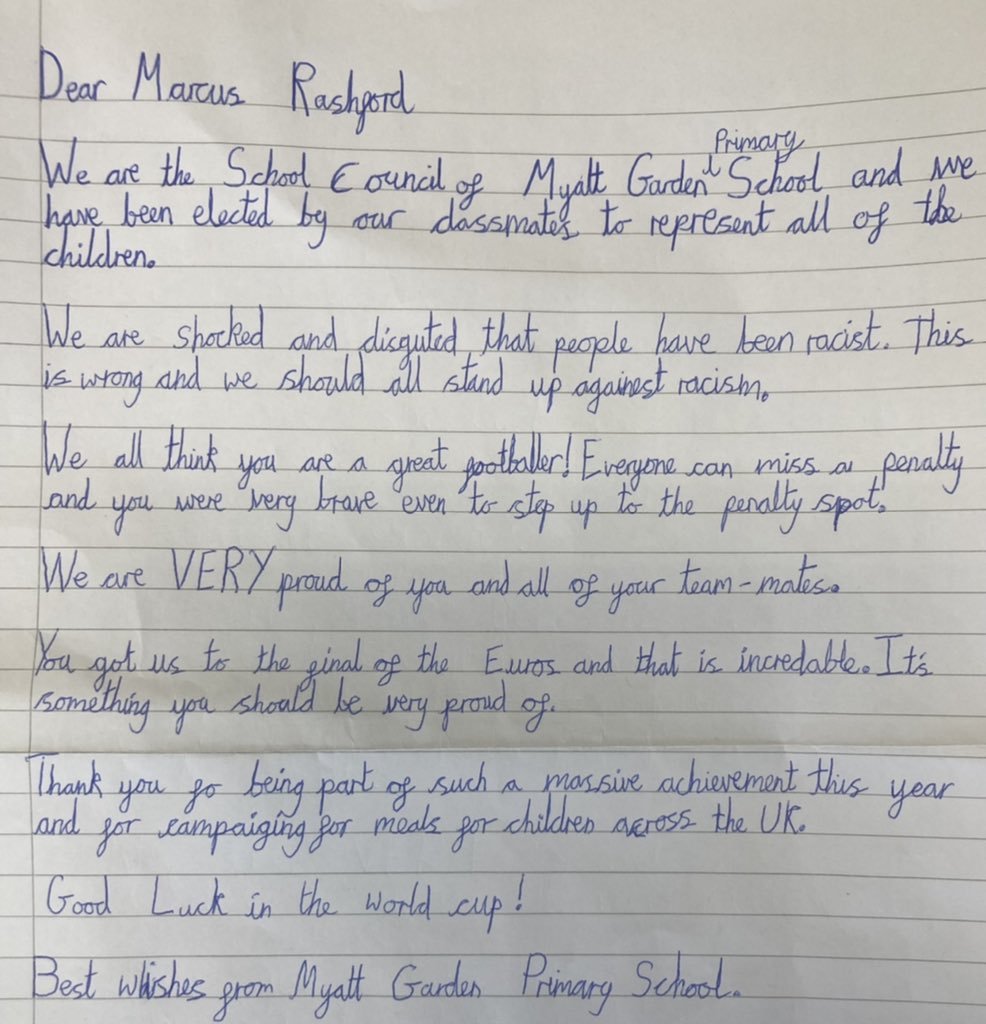 Dear Marcus Rashford
We are the School Council of Myatt Garden Primary School and we
have been elected by our classmates to represent all of the
children.
We are shocked and disguted that people have been racist. This
is wrong and we should all stand up against racism.
We all think you are a great footballer! Everyone can miss a penalty
and you were very brave even to step up to the penalty spot.
We are VERY proud of you and all of your team-mates.
You got us to the final of the Euros and that is incredable. It's
something you should be very proud of.
Thank you fo being part of such a massive achievement this year
and for campaiging for meals for children across the UK.
Good Luck in the world cup!
Best whishes from Myatt Garden Primary School.